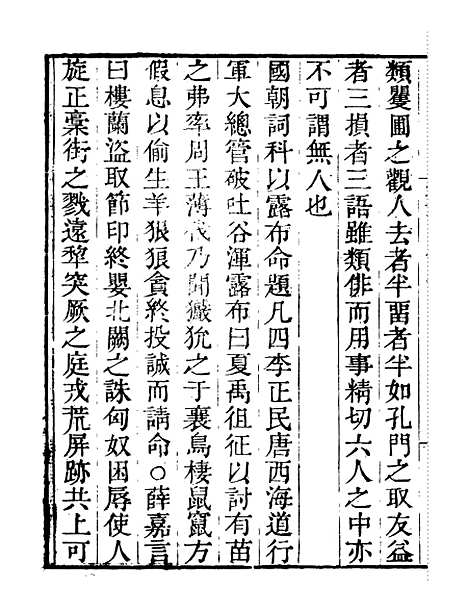 類矍圃之觀人去者半畱者半如孔門之取友益
者三損者三語雖類俳而用事精切六人之中亦
不可謂無人也
國朝詞科以露布命題凡四李正民唐西海道行
軍大總管破吐谷渾露布曰夏禹徂征以討有苗
之弗率周王薄伐乃聞玁狁之于襄鳥棲鼠竄方
假息以偷生羊狠狼貪終投誠而請命○薛嘉言
曰樓蘭盜取節印終嬰北闕之誅匈奴困辱使人
旋正藁街之戮遠犂突厥之庭戎荒屏跡共上可